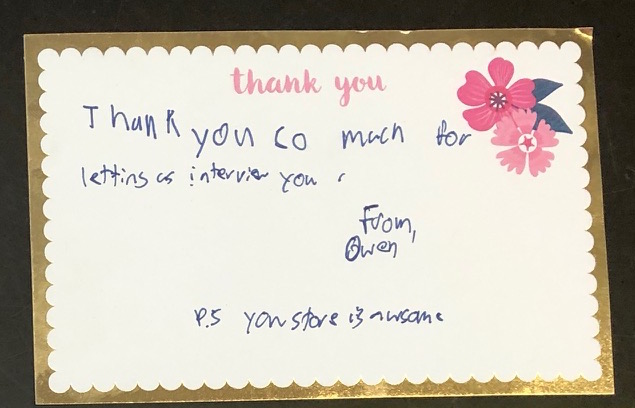 thank you
Thank you so much for
letting us interview you .
From,
Owen
P.S you store is awsome